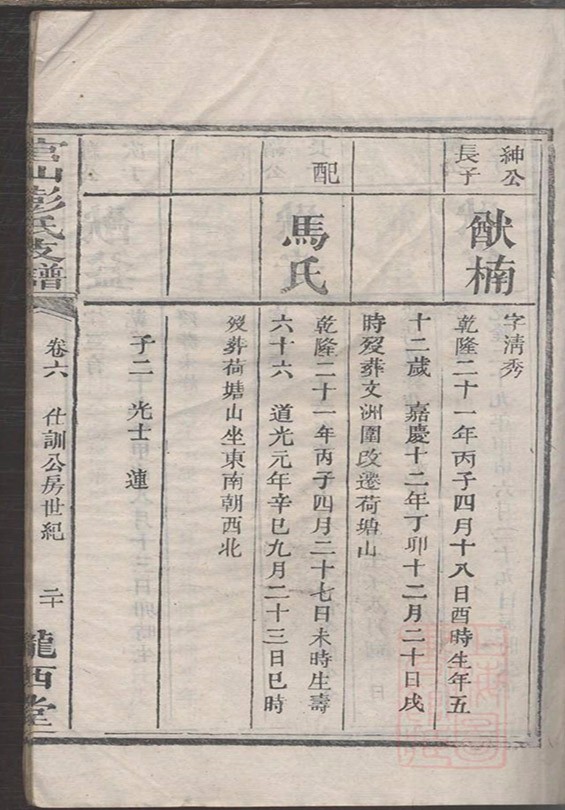 紳公
長子
猷楠
字清秀
乾隆二十一年丙子四月十八日酉時生年五
十二歲 嘉慶十二年丁卯十二月二十日戌
時歿葬文洲圍改遷荷塘山
配
馬氏
乾隆二十一年丙子四月二十七日未時生壽
六十六 道光元年辛巳九月二十三日巳時
歿葬荷塘山坐東南朝西北
子二 光士 蓮
山彭氏支譜
卷六 仕訓公房世紀 二十 隴西堂